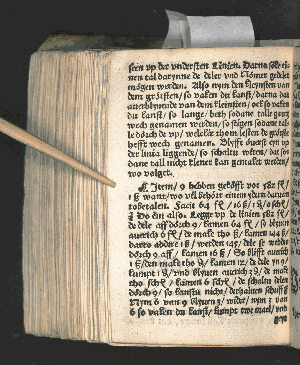 seen vp der vndersten Linien. Darna söke einen
nen tal darynne de deler vnd Nömer gedelet
mögen werden. Also nym den kleynsten van
dem grötsten / so vaken du kanst / darna dat
auerblyuende van dem kleinsten / ock so vaken
du kanst / so lange / beth sodane talle gantz
wech genamen werden / so
le dörch de vp / welcke thom lesten de gröste
hefft wech genamen. Blyfft öuerst eyn vp
der linia liggende / so schaltu weten / dat sodane
tall nicht klener kan gemaket werden /
wo volget.
Item / 9 hebben geköfft vor 582 fl /
1 ß want / wo vel behöret einem ydern daruan
tobetalen. Facit 64 fl / 16 ß / 8
Do ein also. Legge vp de linien 582 fl /
de dele aff dörch 9 / kamen 64 fl / so blyuen
auerich 6 fl / de make tho ß / kamen 144 ß /
darto addere 1 ß / werden 145 / dele se wedder
dörch 9 aff / kamen 16 ß / So blifft auerich
1 ß / den make tho / kamen 12 / de dele yn 9 /
kumpt 1 / vnd blyuen auerich 3 / de make
tho / kamen 6 / de schaltu delen
dörch 9 / so kanstu nicht / derhaluen
Nym 6 van 9 blyuen 3 / wider / nym 3 van
6 so vaken du kanst / kumpt twe mael / vnd